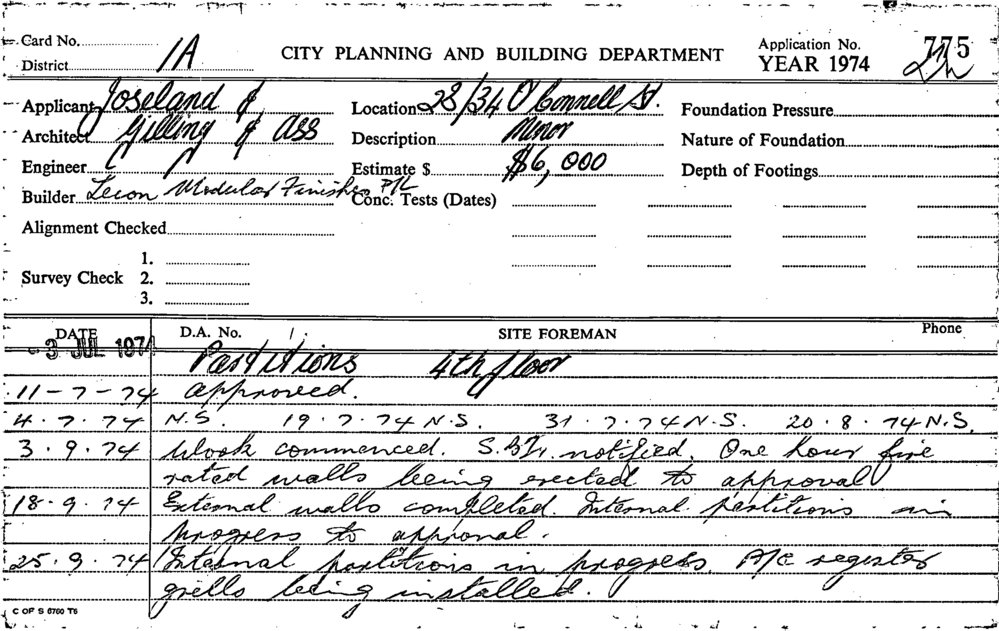 Card No.
District 1A
CITY PLANNING AND BUILDING DEPARTMENT
Application No. 775
YEAR 1974
Applicant Joseland &
Architect Gilling & Ass
Engineer
Builder Lecon Modular Finishes P/L
Location 28/34 O'Connell St.
Description Minor
Estimate $ $6,000
Conc. Tests (Dates)
Foundation Pressure
Nature of Foundation
Depth of Footings
Alignment Checked
Survey Check 1.
2.
3.
DATE D.A. No. SITE FOREMAN Phone
- 3 JUL 1974 Partitions 4th floor
11-7-74 approved.
4.7.74 N.S. 19.7.74 N.S. 31.7.74 N.S. 20.8.74 N.S.
3.9.74 Work commenced. notified. One hour fire
rated walls being erected to approval
18.9.74 External walls completed. Internal partitions in
progress to approval.
25.9.74 Internal partitions in progress. A/C register
grells being installed.
C OF S 6760 T6